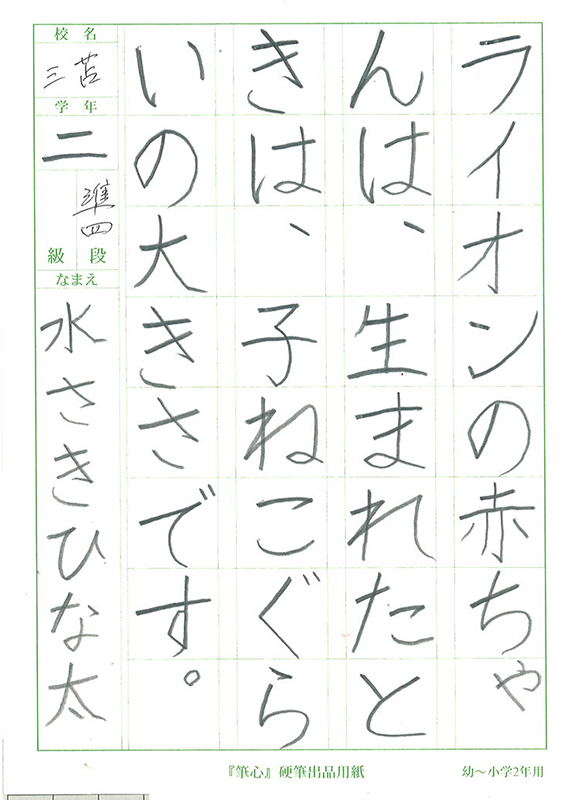 ライオンの赤ちゃ
んは、生まれたと
きは、子ねこぐら
いの大きさです。
校名
三苫
学年
二
準四
級段
なまえ
水さきひな太
『筆心』硬筆出品用紙
幼〜小学2年用